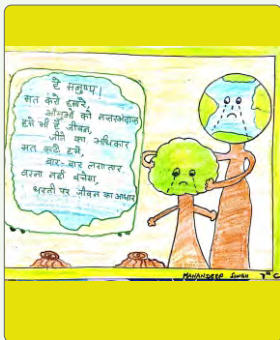 हे मनुष्य!
मत करो हमारे,
आँसुओं को नजरअंदाज
हमें भी है जीवन,
जीने का अधिकार
मत काटो हमें,
बार-बार लगातार
वरना नहीं बचेगा,
धरती पर जीवन का आधार
MANANDEEP SINGH 7th C